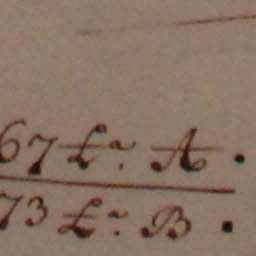 67 £ª. A.
73 £ª. B.